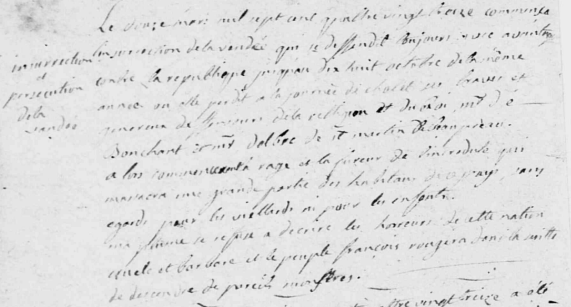 Le douze mars mil sept cent quattre vingt treize commença
insurrection
et
persecution
de la
vandée
l'insurrection de la vendée qui se deffendit toujours avec avantage
contre la republique jusqu'au dix huit octobre de la même
année ou elle perdit a la journée de cholet ses braves et
genereux deffenseurs de la religion et du roi, mr de
Bonchant et mr delbée de st martin de Beaupreau.
a lors commença la rage et la fureur de l'incredule qui
massacra une grande partie des habitans de ce pays, sans
egards pour les vieillards ni pour les enfants.
ma plume se refuse a decrire les horreurs de cette nation
cruele et barbare et le peuple françois rougira dans la suitte
de descendre de pareils monstres.
vingt treize a été